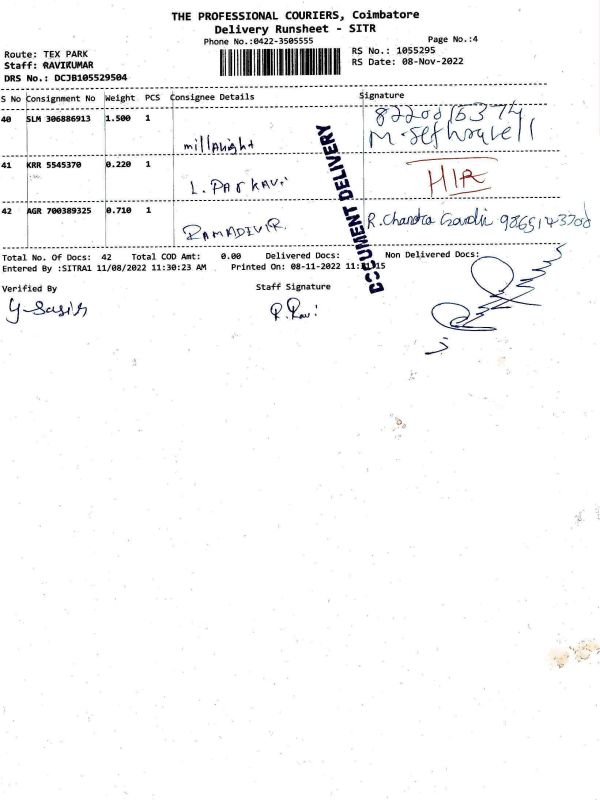 THE PROFESSIONAL COURIERS, Coimbatore
Delivery Runsheet - SITR
Phone No.:0422-3505555
Page No.:4
Route: TEX PARK
Staff: RAVIKUMAR
DRS No.: DCJB105529504
RS No.: 1055295
RS Date: 08-Nov-2022
S No Consignment No Weight PCS Consignee Details Signature
40 SLM 306886913 1.500 1
41 KRR 5545370 0.220 1 L. PARKAVi
HIR
42 AGR 700389325 0.710 1
R. Chandra Gandhi
DOCUMENT DELIVERY
Total No. Of Docs: 42 Total COD Amt: 0.00 Delivered Docs: Non Delivered Docs:
Entered By :SITRA1 11/08/2022 11:30:23 AM Printed On: 08-11-2022
Verified By Staff Signature
R. Ravi